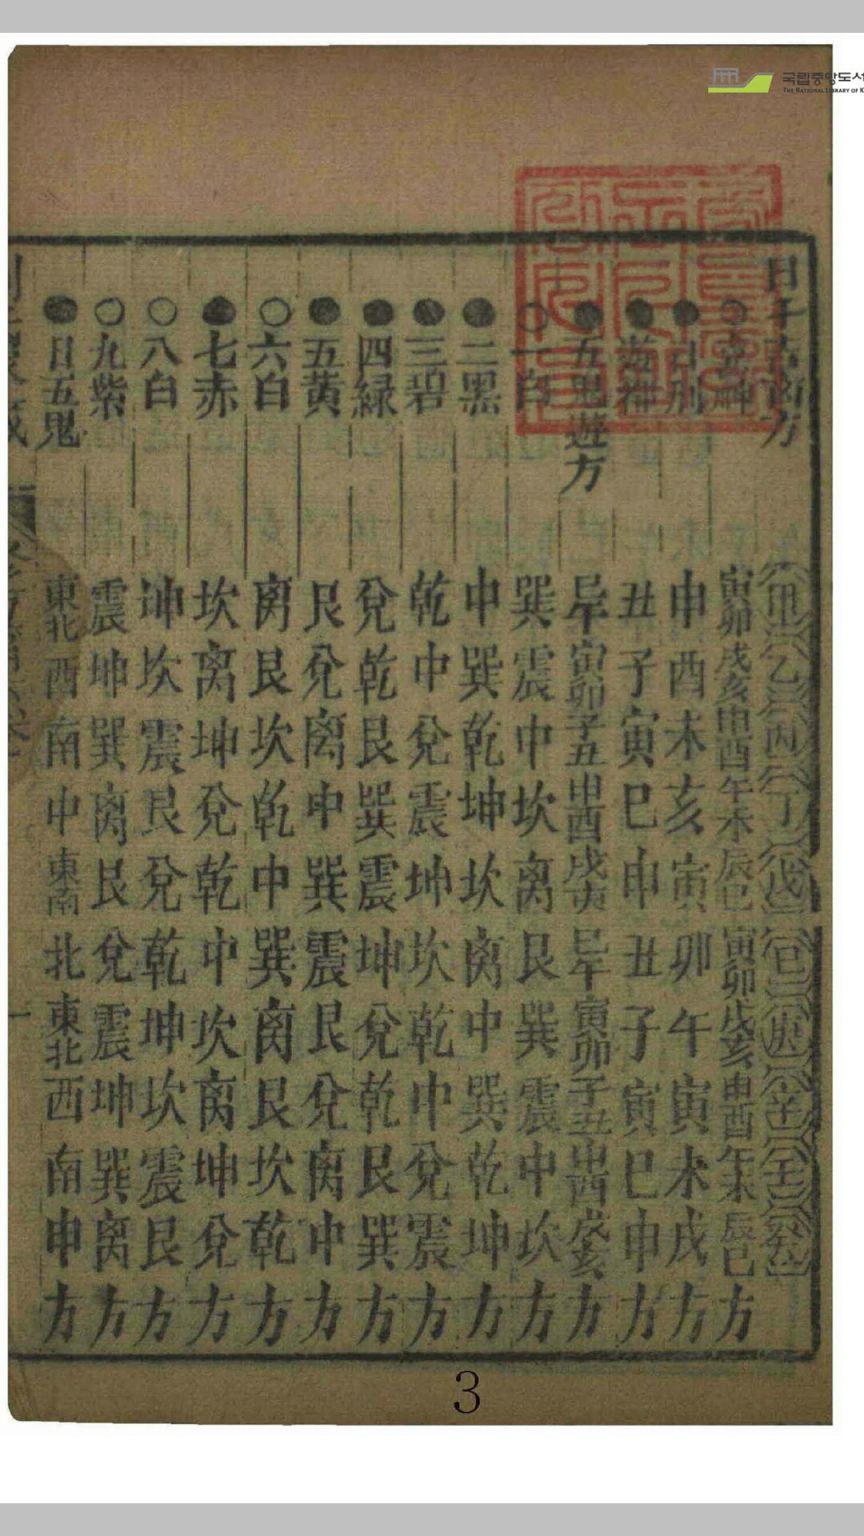 国립중앙도서
THE NATIONAL LIBRARY OF K
日干吉凶方 甲乙丙丁戊己庚辛壬癸
○喜神 寅卯 戌亥 申酉 午未 辰巳 寅卯 戌亥 申酉 午未 辰巳 方
●日刑 申酉未亥寅卯午寅未戌方
●遊禍 丑子寅巳申丑子寅巳申方
●五鬼遊方 巳午 寅卯 子丑 申酉 戌亥 巳午 寅卯 子丑 申酉 戌亥 方
○一白 巽震中坎离艮巽震中坎方
●二黑 中巽乾坤坎离中巽乾坤方
●三碧 乾中兌震坤坎乾中兌震方
●四緑 兌乾艮巽震坤兌乾艮巽方
●五黃 艮兌离中巽震艮兌离中方
○六白 离艮坎乾中巽离艮坎乾方
●七赤 坎离坤兌乾中坎离坤兌方
○八白 坤坎震艮兌乾坤坎震艮方
○九紫 震坤巽离艮兌震坤巽离方
●日五鬼 東北 西南中 東南 北 東北 西南申方
3